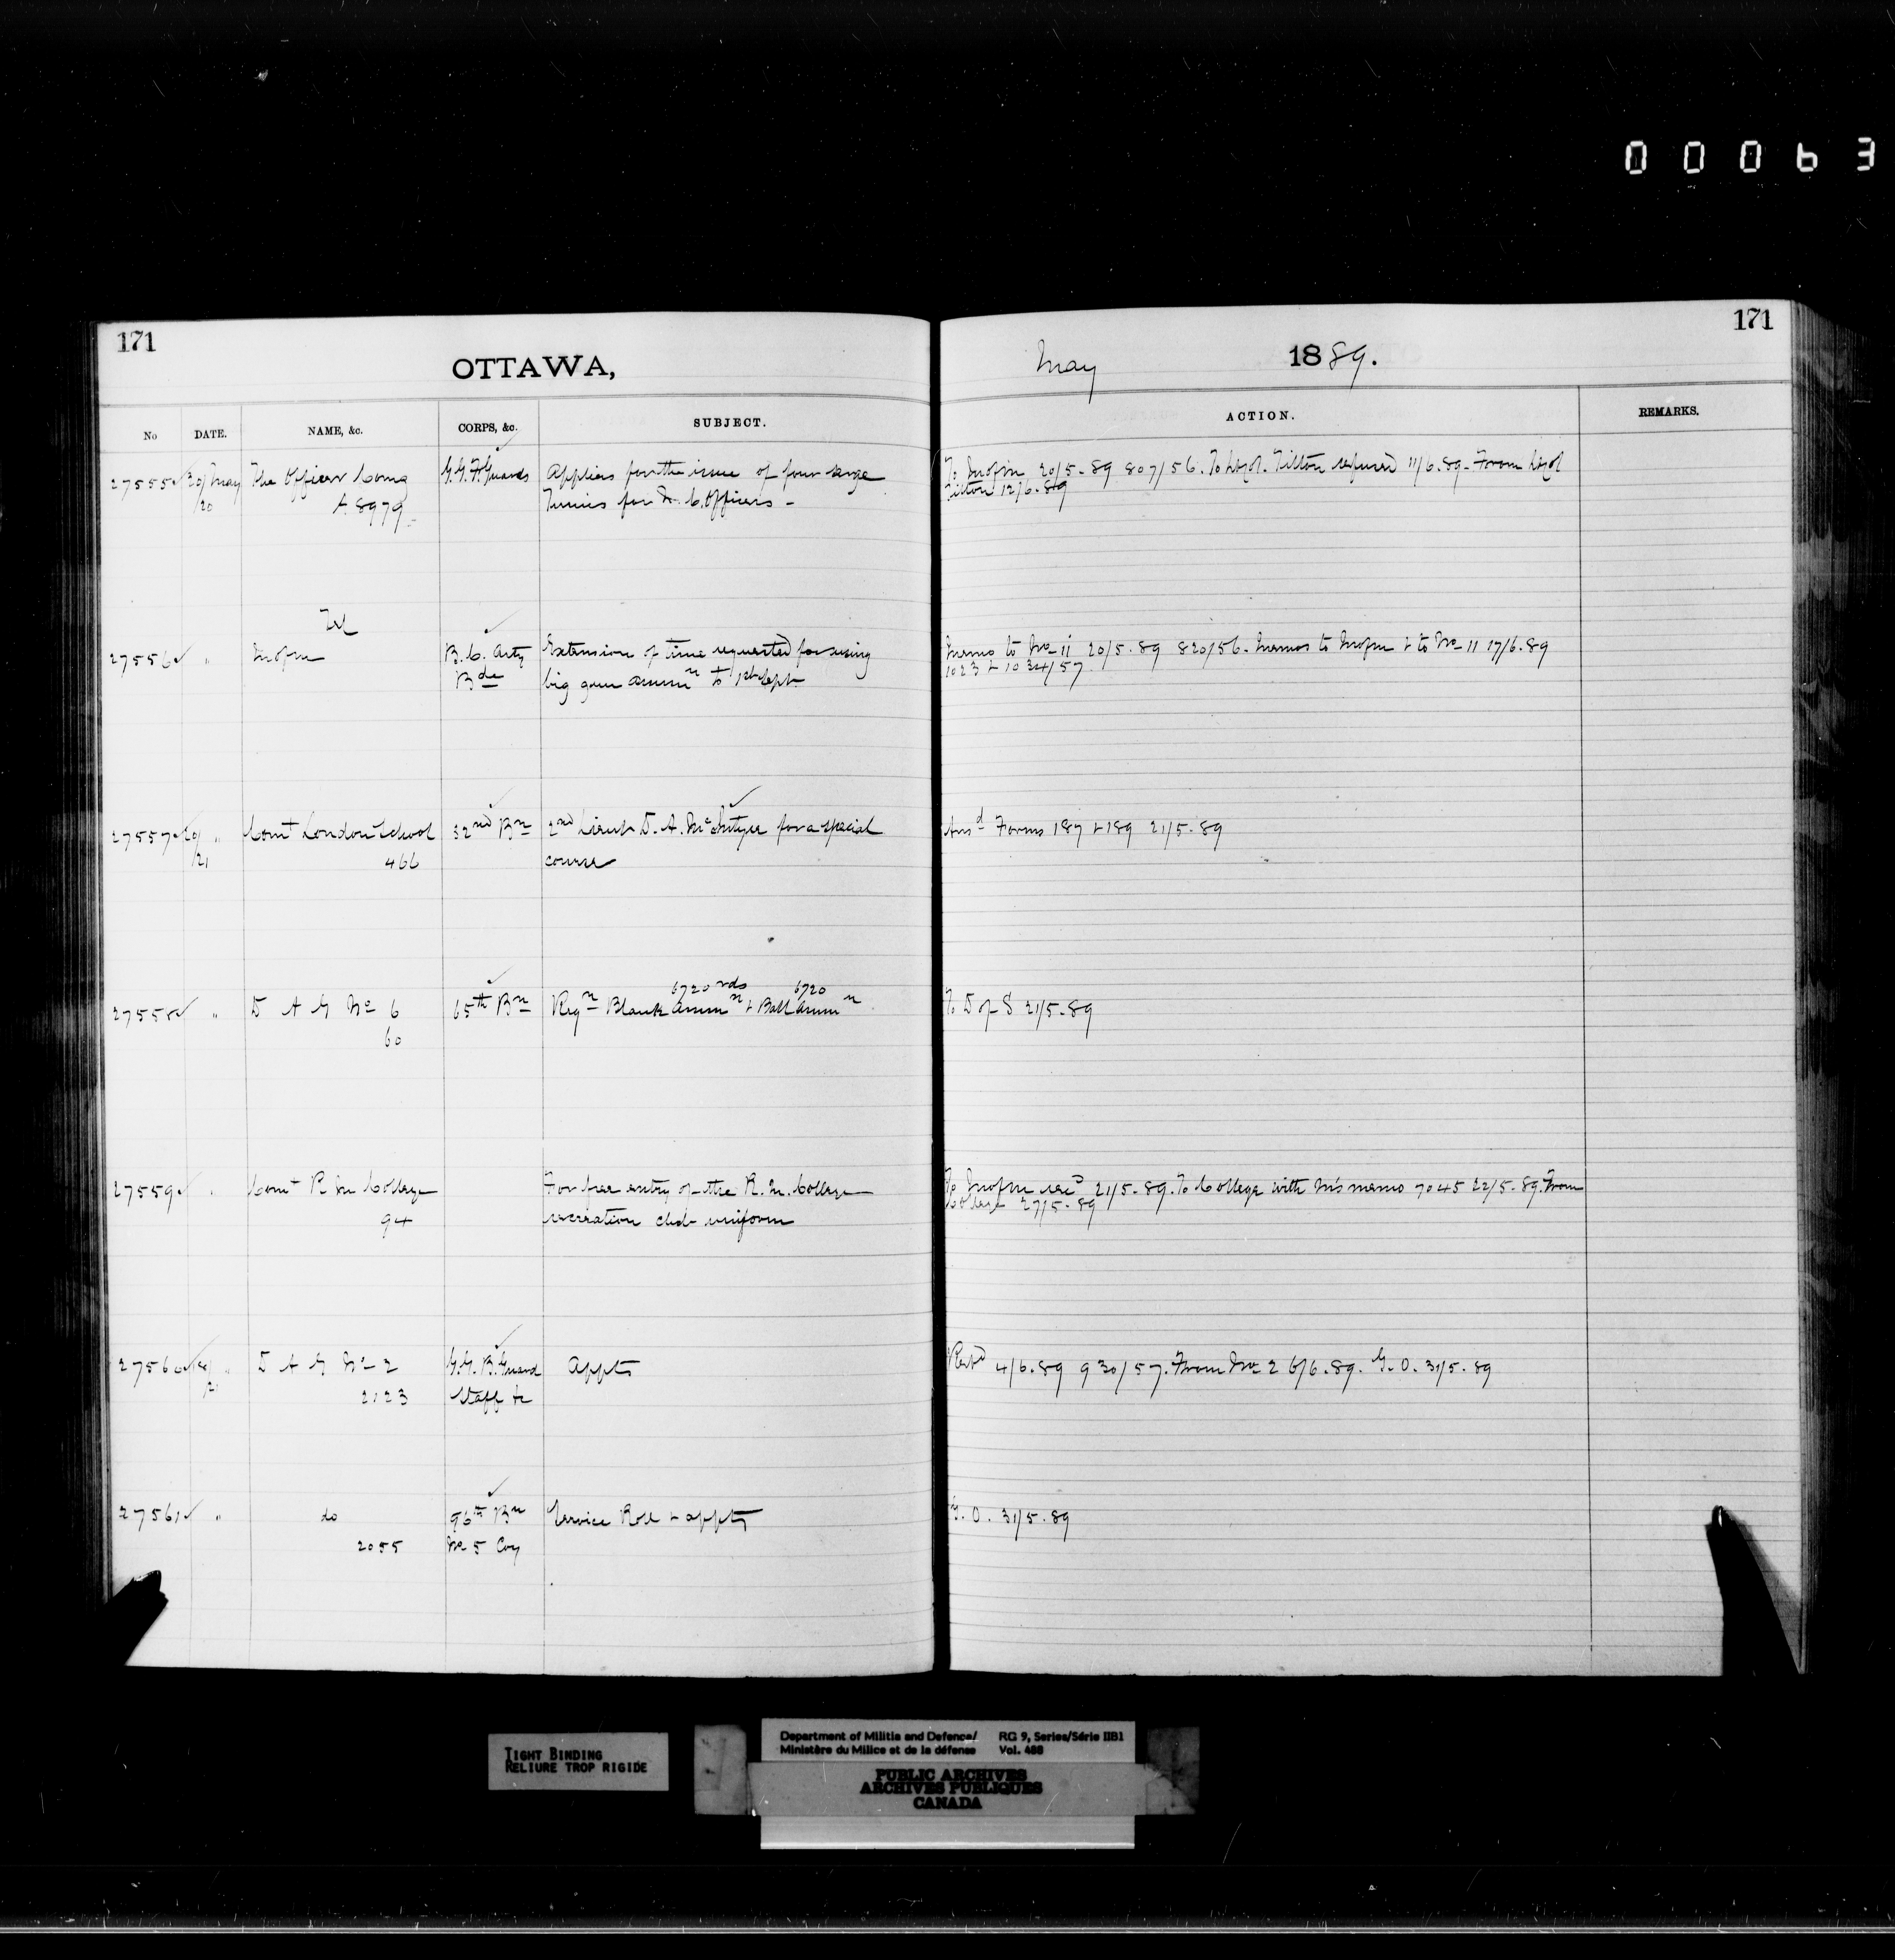 00063
171
171
OTTAWA,
May 1889.
No DATE. NAME, &c. CORPS, &c. SUBJECT. ACTION. REMARKS.
27555 20/May The Officer Comg G.G.F. Guards Applies for the issue of four serge To 20/5-89 807/56. To Lt Col. Tilton refused 11/6.89 - From Lt Col
/20 A 8979 Tunics for N.C. Officers - Tilton 12/6-89
Tel
27556 " B.C. Arty Extension of time requested for using Memo to No 11 20/5.89 820/56. Memos to + to No 11 17/6.89
Bde big gun ammn to 1st Sept 1023 + 1034/57
27557 20/ " Comt London School 32nd Bn 2nd Lieut D.A. McIntyre for a special Ansd Forms 187 + 189 21/5.89
/21 466 course
6720 rds 6720
27558 " D A G No 6 65th Bn Reqn Blank ammn + Ball ammn To D of S 21/5-89
60
27559 " Comt R M College For free entry of the R.M. College To 21/5-89. To College with M's memo 7045 22/5-89. From
94 recreation club uniform College 27/5-89
27560 " D A G No 2 G.G.B. Guard Appts 4/6.89 930/57. From No 2 6/6.89. G.O. 31/5.89
2123 Staff &c
27561 " do 96th Bn Service Roll + appts G.O. 31/5.89
2055 No 5 Coy
TIGHT BINDING
RELIURE TROP RIGIDE
Department of Militia and Defence/ RG 9, Series/Série IIB1
Ministère du Milice et de la défense Vol. 488
PUBLIC ARCHIVES
ARCHIVES PUBLIQUES
CANADA